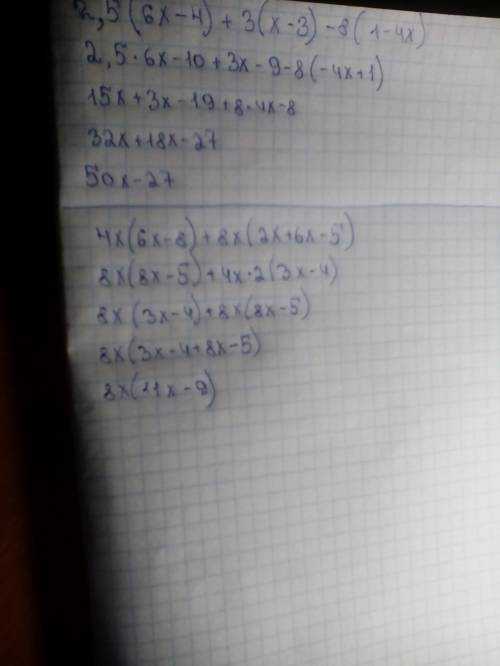 2,5(6x-4)+3(x-3)-8(1-4x)
2,5·6x-10+3x-9-8(-4x+1)
15x+3x-19+8·4x-8
32x+18x-27
50x-27
4x(6x-8)+8x(2x+6x-5)
8x(8x-5)+4x·2(3x-4)
8x(3x-4)+8x(8x-5)
8x(3x-4+8x-5)
8x(11x-9)